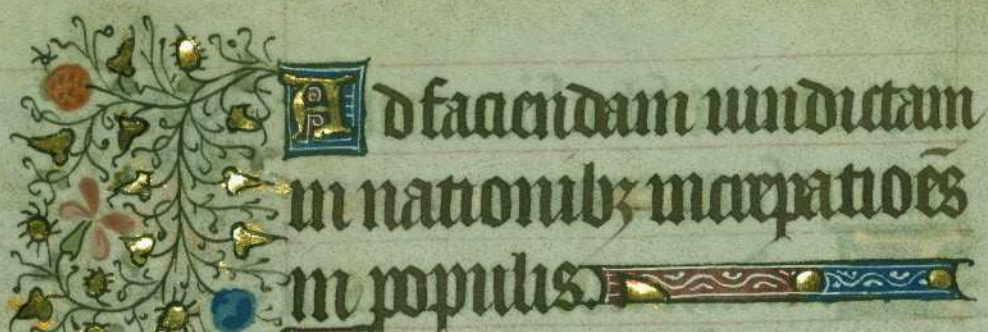 Ad faciendam uindictam
in nationibꝫ increpatiões
in populis.